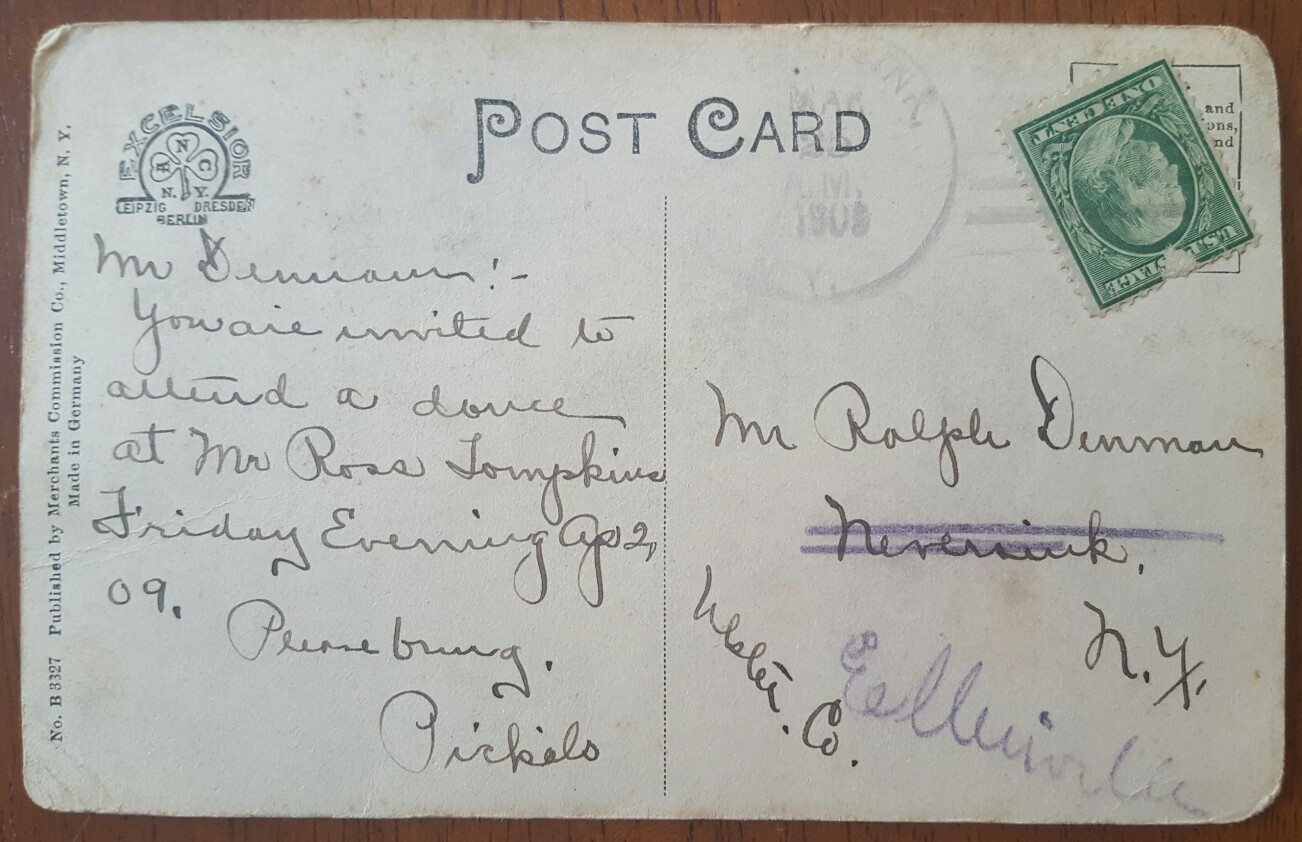 POST CARD
EXCELSIOR
A N C
N. Y.
LEIPZIG DRESDEN
BERLIN
No. B 3327 Published by Merchants Commission Co., Middletown, N. Y.
Made in Germany
Mr Denman!-
You are invited to
attend a dance
at Mr Ross Tompkins
Friday Evening Ap 2,
09.
Please bring.
Pickels
A.M.
1909
Y.
U.S.
ONE
and
ons,
nd
Mr Ralph Denman
Neversink,
N.Y.
Ulster. Co.
Ellenville